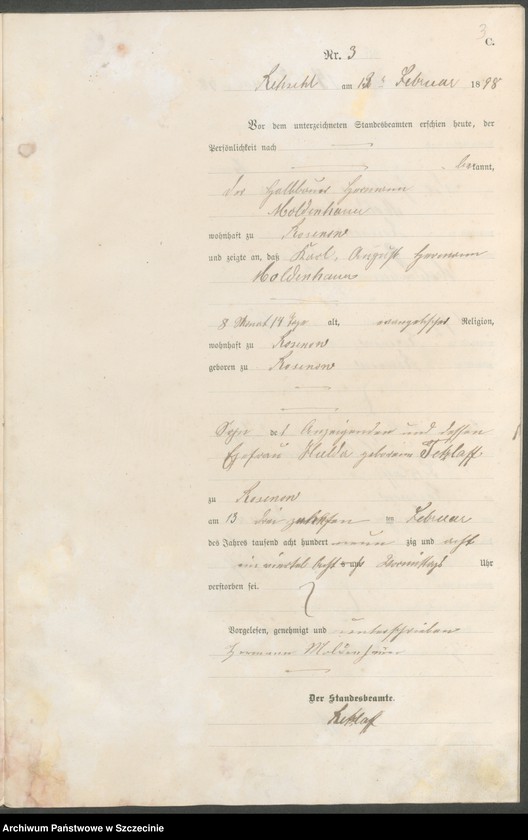 3
C.
Nr. 3
am 13 Februar 1898
Vor dem unterzeichneten Standesbeamten erschien heute, der
Persönlichkeit nach
bekannt,
der Halbbauer Hermann
Moldenhauer
wohnhaft zu Rosenow
und zeigte an, daß Karl, August Hermann
Moldenhauer
8 Monat 14 Tage alt, evangelischer Religion,
wohnhaft zu Rosenow
geboren zu Rosenow
Sohn des Anzeigenden und dessen
Ehefrau Hulda geborene
zu Rosenow
am 13 dreizehnten Februar
des Jahres tausend acht hundert neunzig und acht
ein viertel Acht Vormittags Uhr
verstorben sei.
Vorgelesen, genehmigt und unterschrieben
Hermann Moldenhauer
Der Standesbeamte.
Archiwum Państwowe w Szczecinie